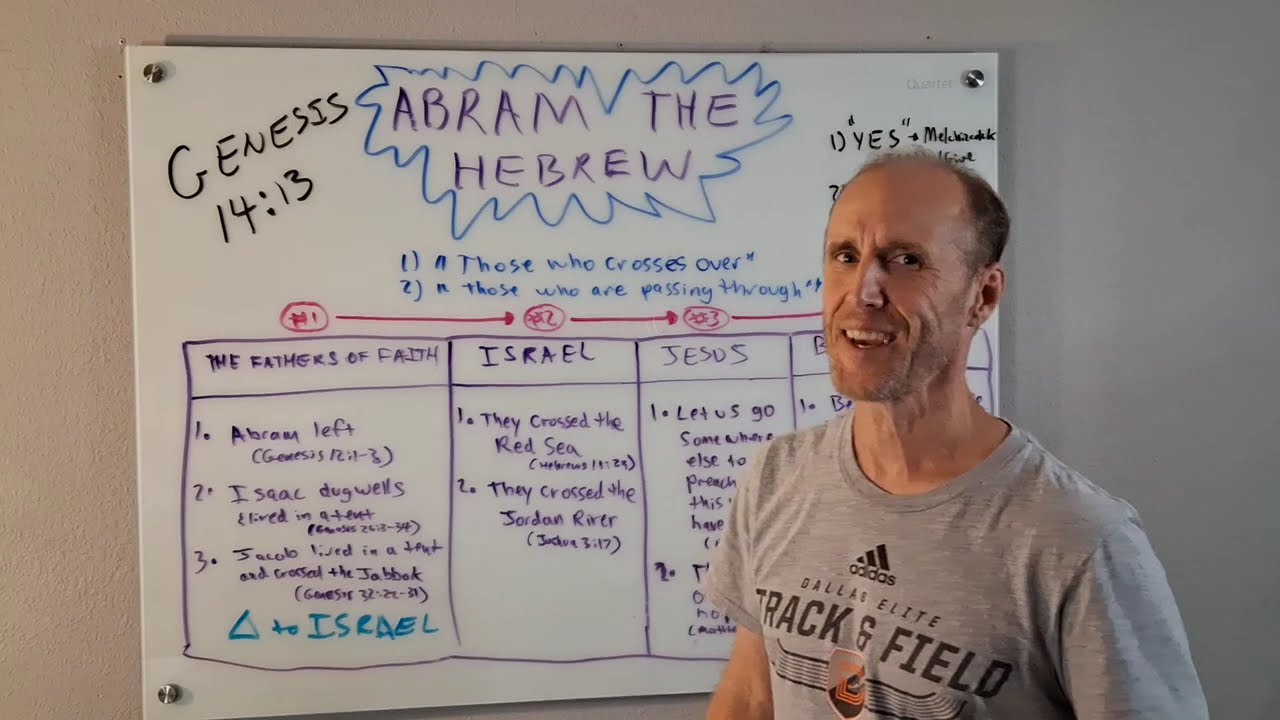 Quartet
GENESIS
14:13
ABRAM THE
HEBREW
1) "YES" → Melchizedek
1) "Those who crosses over"
2) "those who are passing through"
#1
#2
#3
THE FATHERS OF FAITH
1. Abram left
(Genesis 12:1-3)
2. Isaac dug wells
& lived in a tent
3. Jacob lived in a tent
and crossed the Jabbok
(Genesis 32:22-31)
Δ to ISRAEL
ISRAEL
1. They crossed the
Red Sea
(Hebrews 11:29)
2. They crossed the
Jordan River
(Joshua 3:17)
JESUS
1. Let us go
Somewhere
else to
preach
this
have
2.
B
1. Be
adidas
DALLAS ELITE
TRACK & FIELD